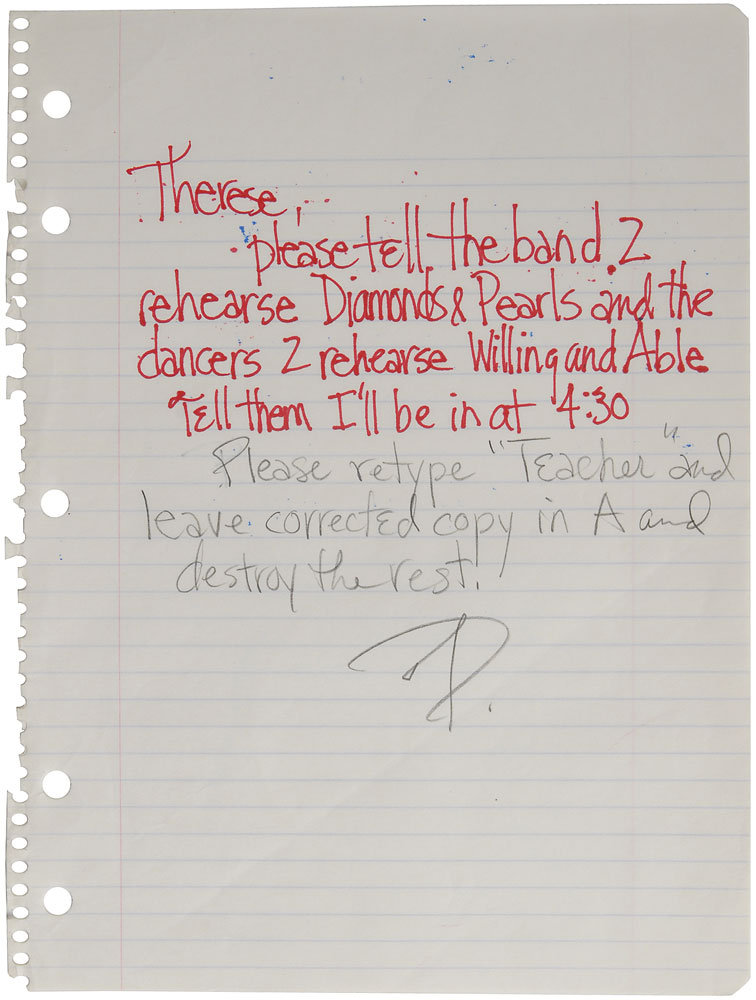 Therese,
please tell the band 2
rehearse Diamonds & Pearls and the
dancers 2 rehearse Willing and Able
Tell them I'll be in at 4:30
Please retype "Teacher" and
leave corrected copy in A and
destroy the rest!
P.